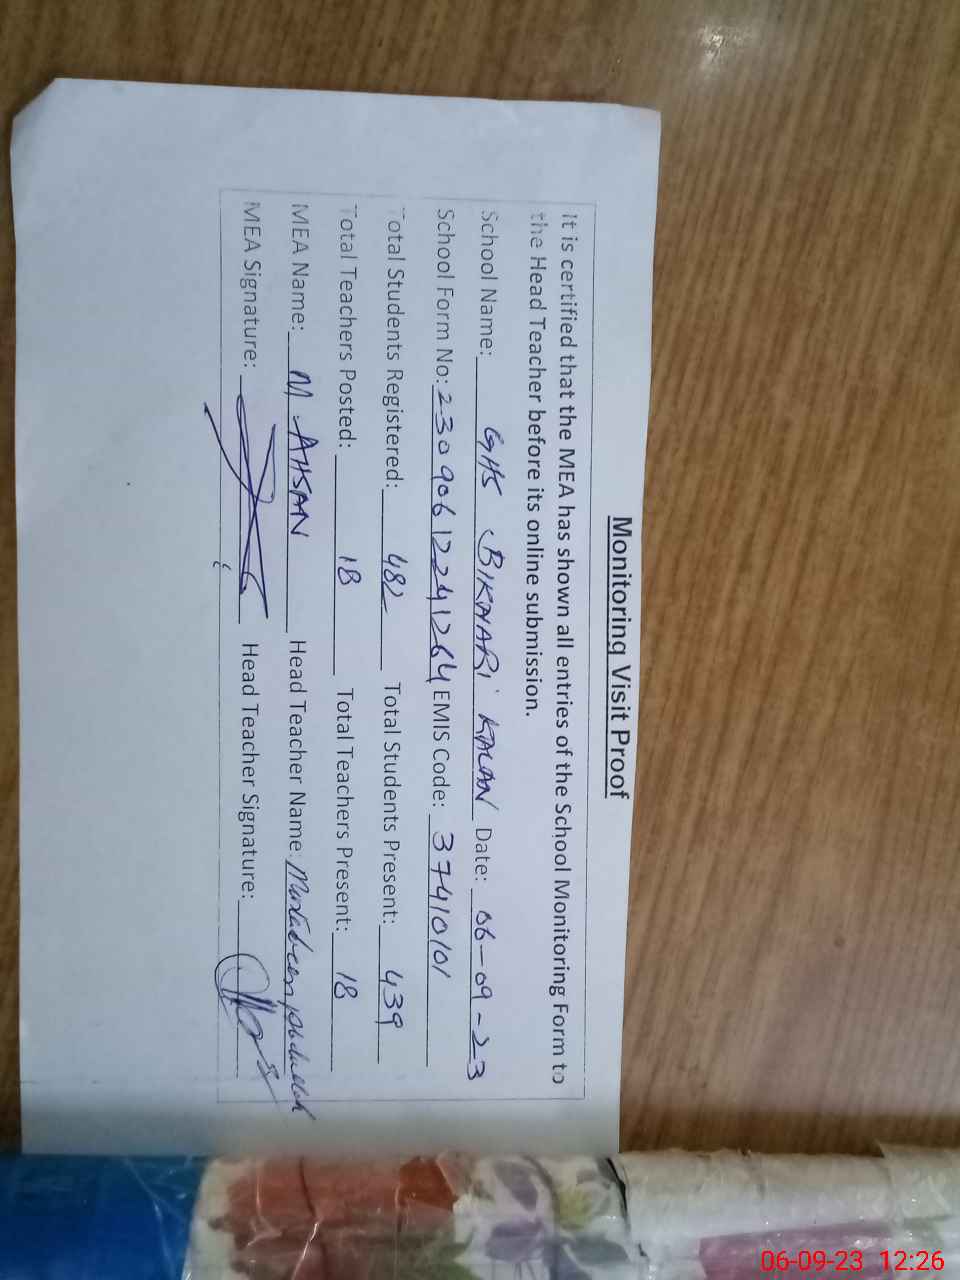 Monitoring Visit Proof
It is certified that the MEA has shown all entries of the School Monitoring Form to
the Head Teacher before its online submission.
School Name: GHS BIKHARI KALAN Date: 06-09-23
School Form No: 230906122241264 EMIS Code: 37410101
Total Students Registered: 482 Total Students Present: 439
Total Teachers Posted: 18 Total Teachers Present: 18
MEA Name: M AHSAN Head Teacher Name:
MEA Signature: Head Teacher Signature:
06-09-23 12:26